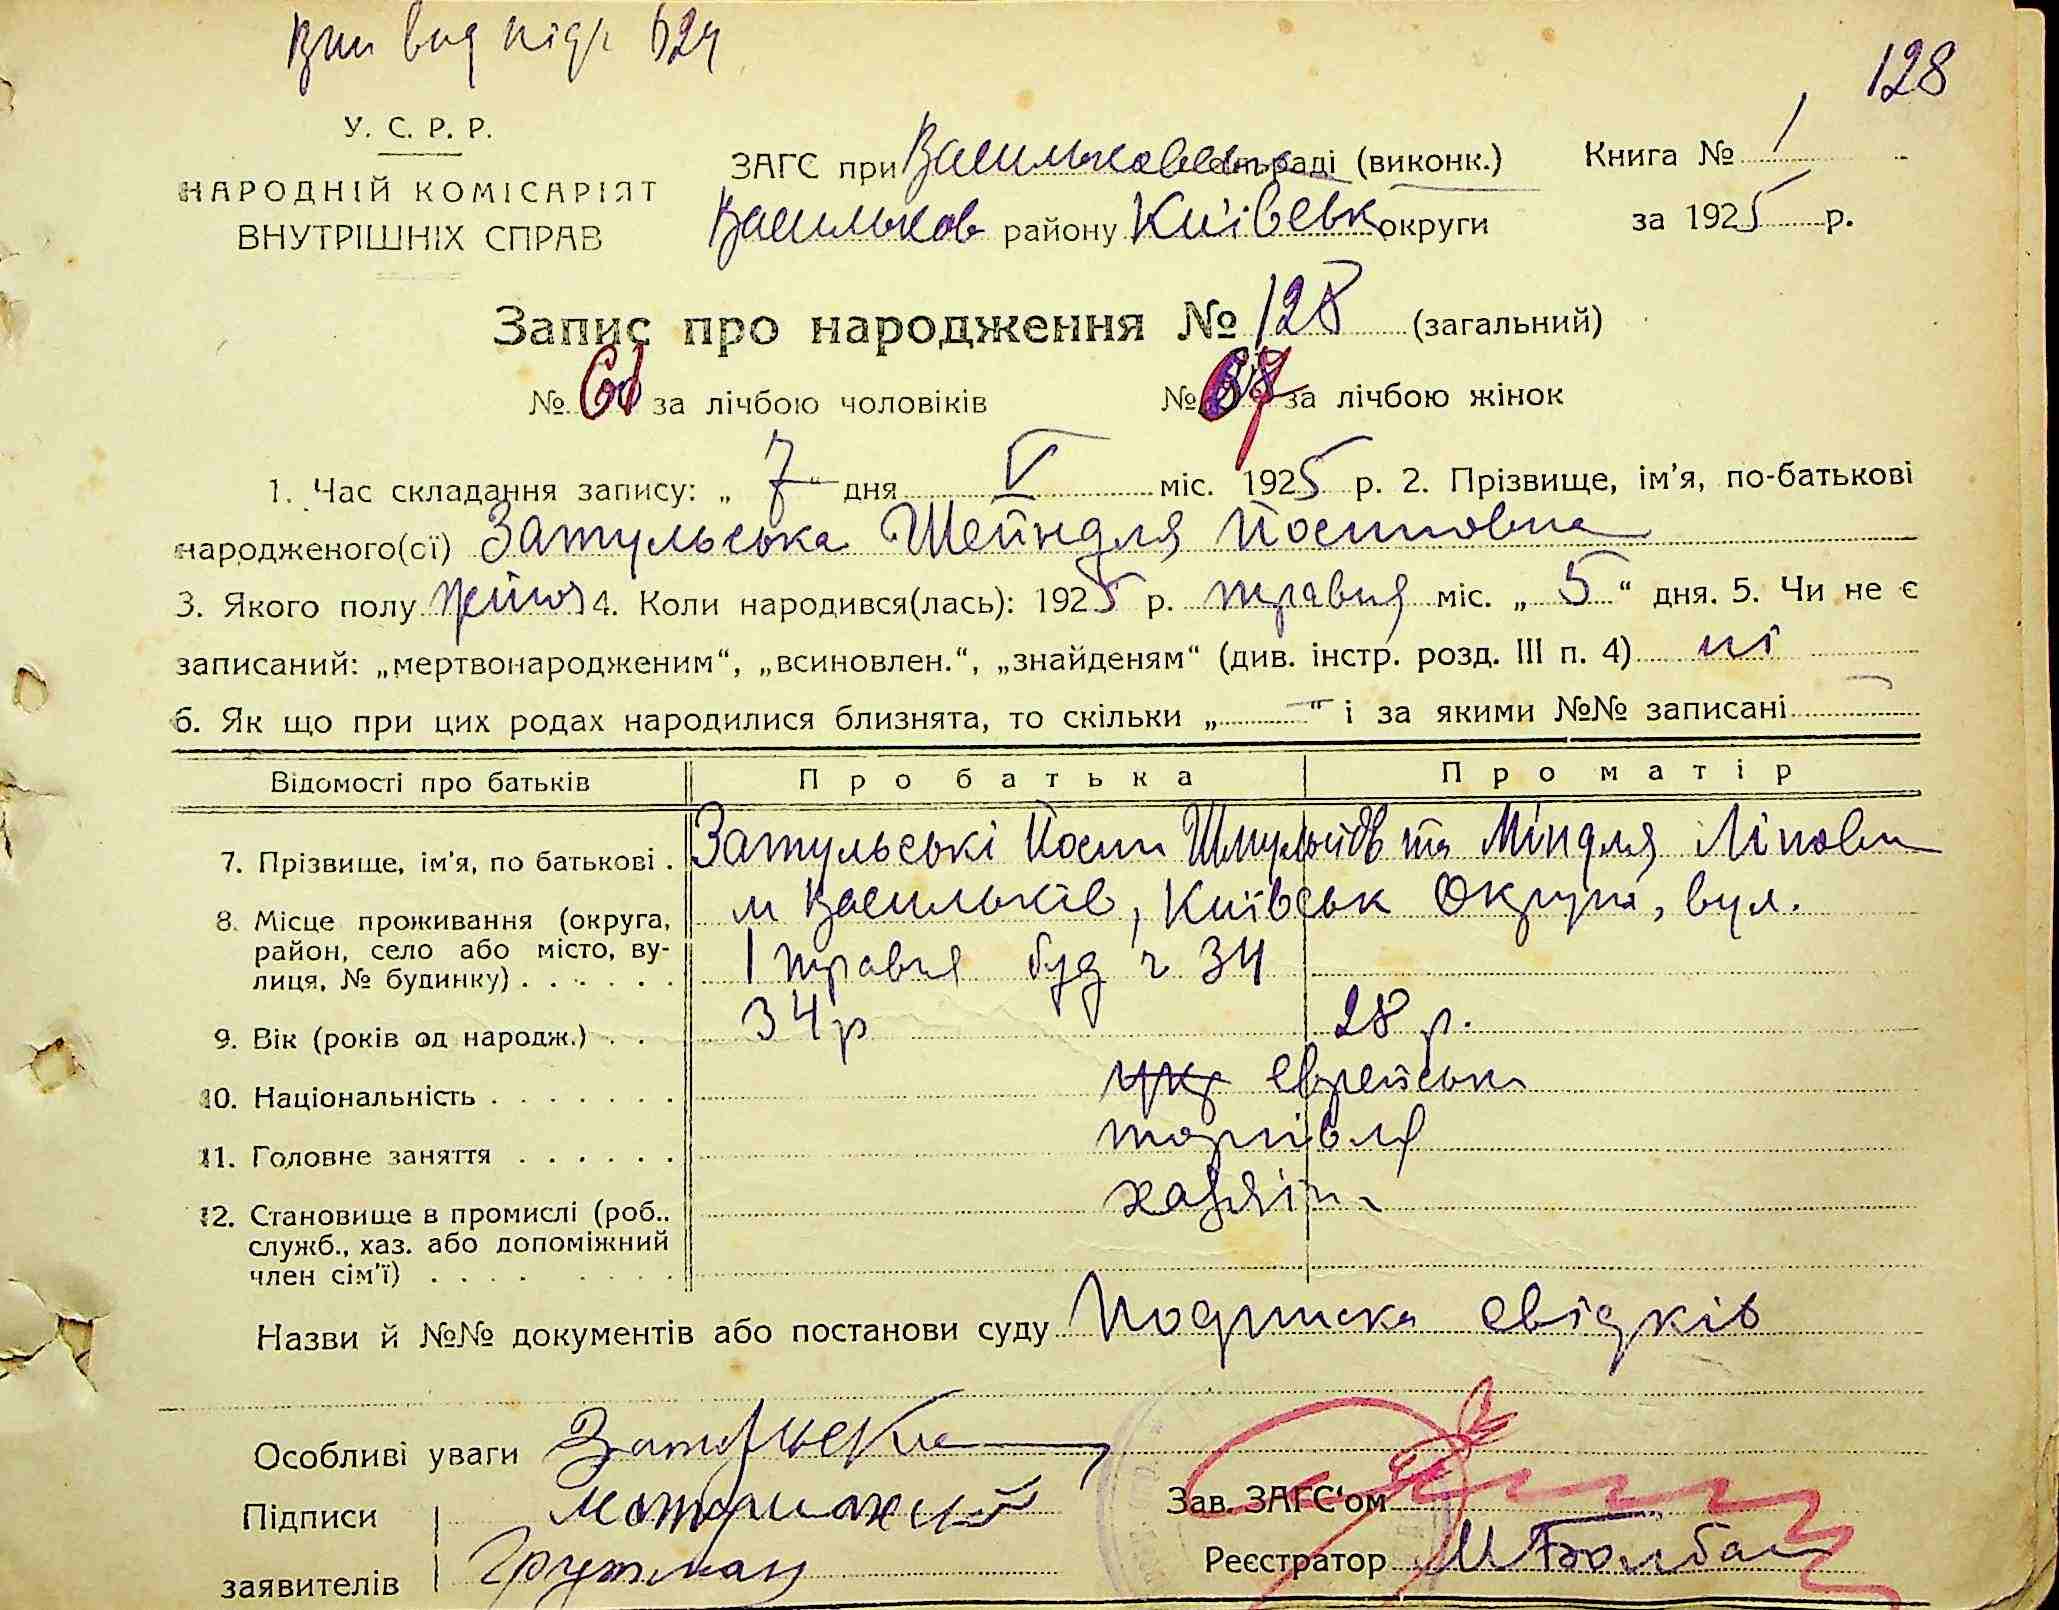 128
У. С. Р. Р.
НАРОДНІЙ КОМІСАРІЯТ
ВНУТРІШНІХ СПРАВ
ЗАГС при Васильковськ раді (виконк.)
Васильков району Київськ округи
Книга № 1
за 1925 р.
Запис про народження № 128 (загальний)
№ 61 за лічбою чоловіків № 67 за лічбою жінок
1. Час складання запису: „ 7 “ дня V міс. 1925 р. 2. Прізвище, ім'я, по-батькові
народженого(сї) Затульська Шейндля Йосиповна
3. Якого полу жіноч 4. Коли народився(лась): 1925 р. травня міс. „ 5 “ дня. 5. Чи не є
записаний: „мертвонародженим“, „всиновлен.“, „знайденям“ (див. інстр. розд. III п. 4) ні
6. Як що при цих родах народилися близнята, то скільки „ — “ і за якими №№ записані —
Відомості про батьків Про батька Про матір
7. Прізвище, ім'я, по батькові . Затульські Йосип Шмульов та Міндля Ліповн
8. Місце проживання (округа, м Васильків, Київськ Округи, вул.
район, село або місто, ву- 1 травня буд ч 34
лиця, № будинку) . . . . . .
9. Вік (років од народж.) . . 34 р 28 р.
10. Національність . . . . . . . укр еврейськ
11. Головне заняття . . . . . . торгівля
12. Становище в промислі (роб., хазяін
служб., хаз. або допоміжний
член сім'ї) . . . . . . . .
Назви й №№ документів або постанови суду Подписка свідків
Особливі уваги Затульська
Підписи
заявителів Грутман
Зав. ЗАГС'ом
Реєстратор